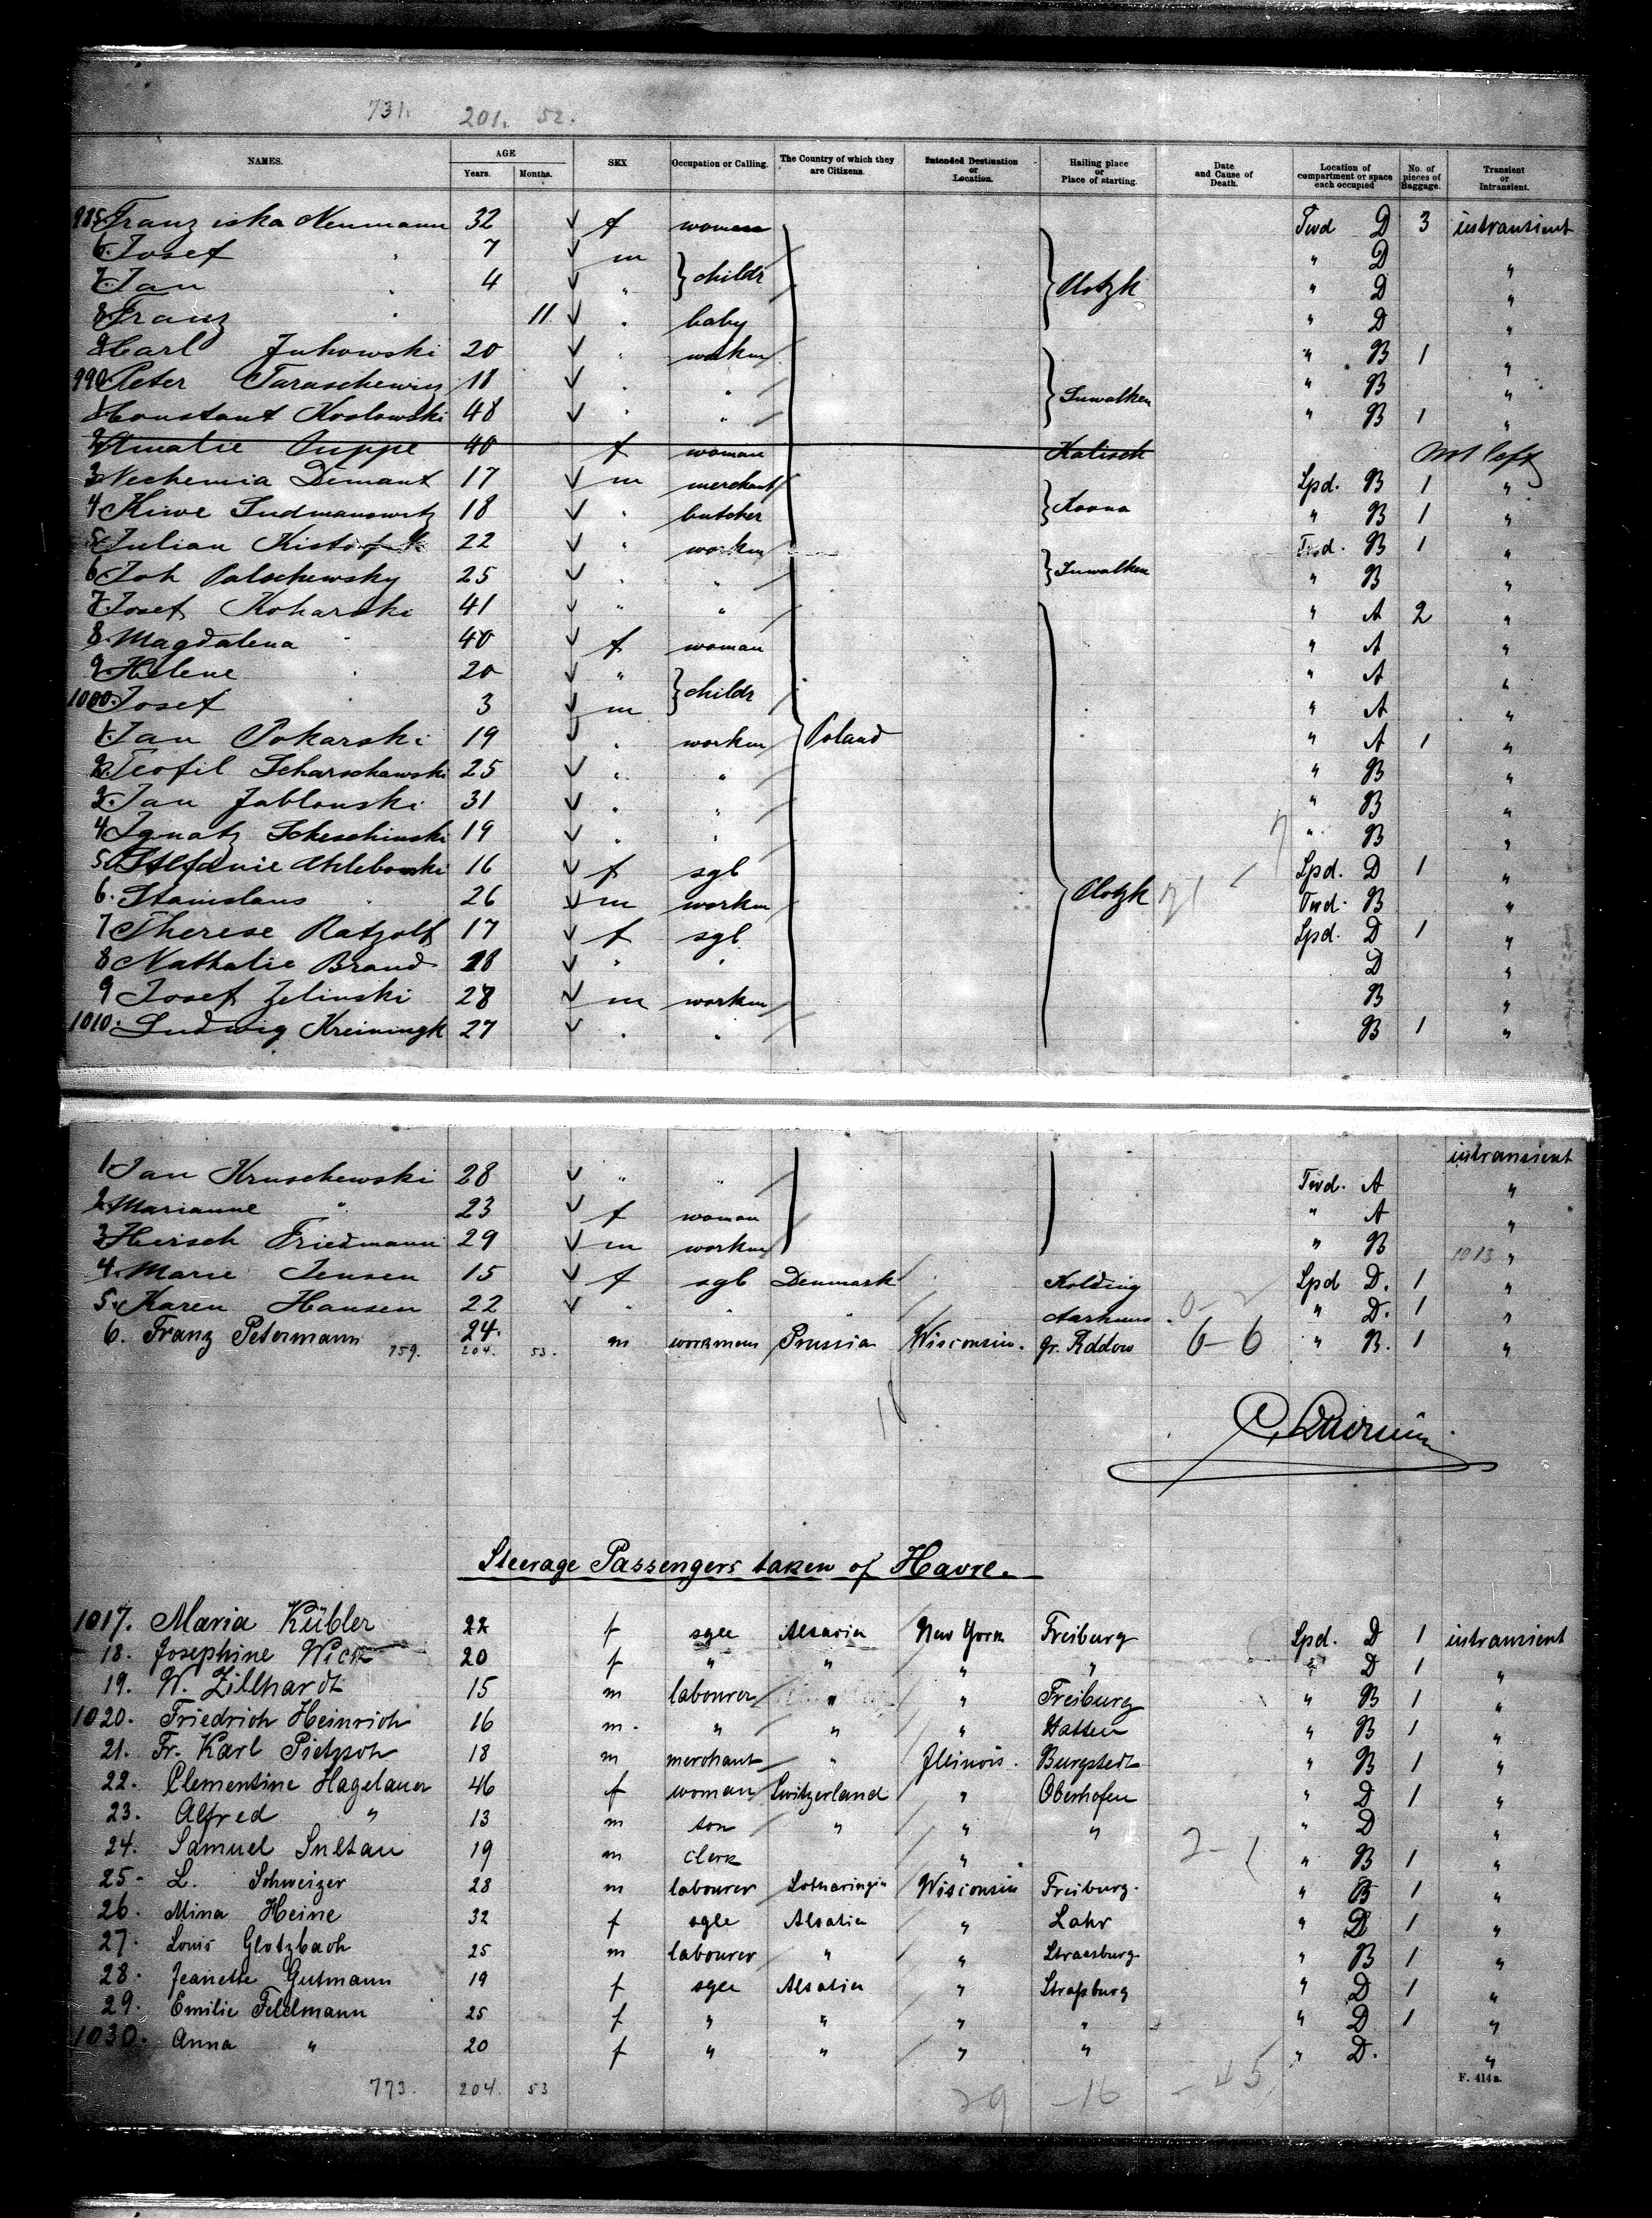 731. 201. 52.
NAMES. AGE Years. Months. SEX Occupation or Calling. The Country of which they are Citizens. Intended Destination or Location. Hailing place or Place of starting. Date and Cause of Death. Location of compartment or space each occupied No. of pieces of Baggage. Transient or Intransient.
985 Franziska Neumann 32 f woman Twd D 3 intransient
6. Josef " 7 m } childr } Plotzk " D "
7. Jan " 4 " " D "
8. Franz " 11 " baby " D "
9 Carl Jukowski 20 " workm " B 1 "
990 Peter Taraschewicz 18 " " } Suwalken " B "
1 Constant Koslowski 48 " " " B 1 "
2 Amalie Puppe 40 f woman Kalisch not left
3 Nechemia Demant 17 m merchant } Kovno Lpd. B 1 "
4 Kiwe Ludmanowitz 18 " butcher " B 1 "
5 Julian 22 " workm } Suwalken Twd. B 1 "
6 Joh Palschewsky 25 " " " B "
7 Josef Koharski 41 " " " A 2 "
8. Magdalena " 40 f woman " A "
9 Helene " 20 " } childr " A "
1000. Josef " 3 m " A "
1. Jan Pokarski 19 " workm } Poland " A 1 "
2. Teofil Scharschawski 25 " " " B "
3. Jan Jablonski 31 " " " B "
4 Ignatz Scheschinski 19 " " " B "
5 Stefanie Chlebowski 16 f sgl Lpd. D 1 "
6. Stanislaus " 26 m workm } Plotzk Twd. B "
7 Therese Ratzolf 17 f sgl Lpd. D 1 "
8 Nathalie Brand 18 " " D "
9 Josef Zelinski 28 m workm B "
1010. Ludwig Kreiningk 27 " " B 1 "
intransient
1 Jan Kruschewski 28 " " Twd. A "
2 Marianne " 23 f woman " A "
3 Hersch Friedmann 29 m workm " B 1013 "
4. Marie Jensen 15 f sgl Denmark Kolding Lpd D. 1 "
5. Karen Hansen 22 " " Aarhuus. 0-2 " D. 1 "
6. Franz Petermann 24. m workmann Prussia Wisconsin. Gr. Raddow 6-6 " B. 1 "
759. 204. 53.
18
Steerage Passengers taken of Havre.
1017. Maria Kübler 22 f sgle Alsacia New York Freiburg Lpd. D 1 intransient
18. Josephine Wick 20 f " " " " " D 1 "
19. W. Zillhardt 15 m labourer " " Freiburg " B 1 "
1020. Friedrich Heinrich 16 m. " " " Hatten " B 1 "
21. Fr. Karl Pietzsch 18 m merchant " Illinois. Burgstedt " B 1 "
22. Clementine Hagelauer 46 f woman Switzerland " Oberhofen " D 1 "
23. Alfred " 13 m son " " " " D "
24. Samuel Sultan 19 m clerk " " 2-1 " B 1 "
25- L. Schweizer 28 m labourer Lotharingia Wisconsin Freiburg. " B 1 "
26. Mina Heine 32 f sgle Alsatia " Lahr " D 1 "
27. Louis Glotzbach 25 m labourer " " Strassburg " B 1 "
28. Jeanette Gutmann 19 f sgle Alsatia " Straßburg " D 1 "
29. Emilie Feldmann 25 f " " " " " D 1 "
1030. Anna " 20 f " " " " " D. "
773. 204. 53 29 -16 -45
F. 414a.